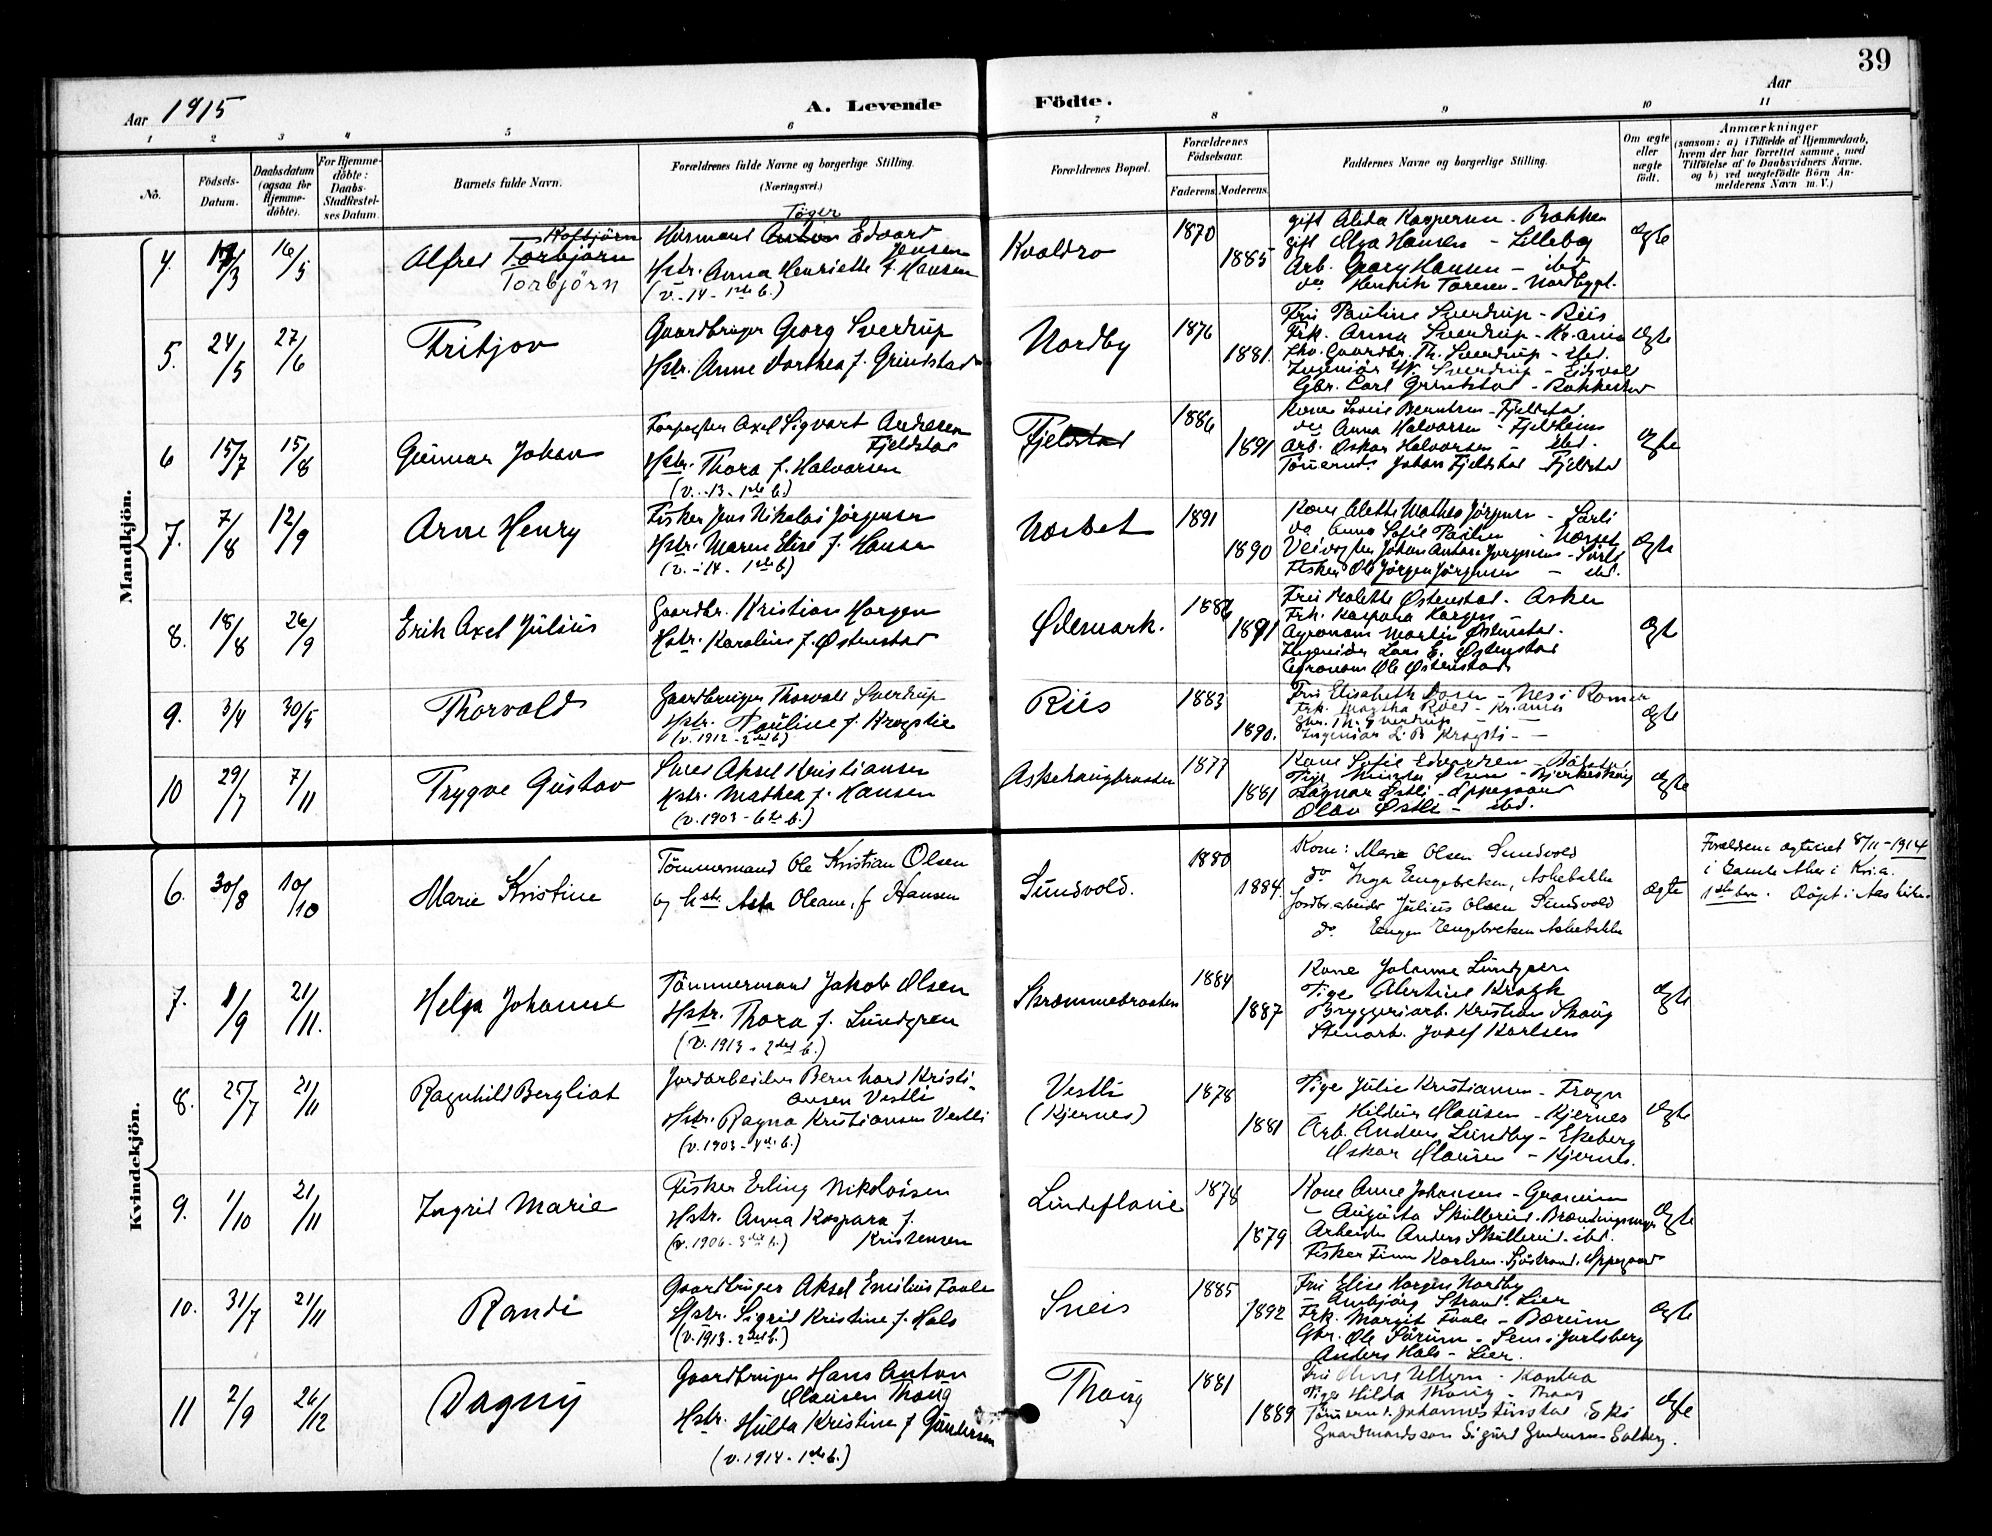 39
Aar 1915
A. Levende Födte.
Aar
1 2 3 4 5 6 7 8 9 10 11
No.
Födsels-Datum.
Daabsdatum (ogsaa for Hjemme-döbte).
For Hjemme-döbte: Daabs-Stadfæstel-ses Datum.
Barnets fulde Navn.
Forældrenes fulde Navne og borgerlige Stilling.
(Næringsvei.)
Forældrenes Bopæl.
Forældrenes Födselsaar.
Faderens. Moderens.
Faddernes Navne og borgerlige Stilling.
Om ægte eller uægte födt.
Anmærkninger
(saasom: a) i Tilfælde af Hjemmedaab,
hvem der har forrettet samme, med
Tilföielse af to Daabsvidners Navne.
og b) ved uægtefödte Börn An-
melderens Navn m. V.)
Mandkjön.
4. /3 16/5 Alfred Torbjörn
Torbjörn
Töger
Hermand Anton Edvard
Jensen
Hstr. Anna Henriette f. Hansen
(v. -14 - 1ste b.)
1870
1885
gift Olga Hansen - Lillebo
Arb. Georg Hansen - ibd
do Henrik Toresen - Nordbypl.
ægte
5. 24/5 27/6 Fritjov
Gaardbruger Georg Sverdrup
Hstr. Anne Dorthea f. Grindstad
Nordby
1876
1881.
Fru Pauline Sverdrup - Riis
Frk. Anna Sverdrup - Kr.ania
Gaardbr. Th. Sverdrup - ibd.
Ingeniör W. Sverdrup - Eidsvold
Gbr. Carl Grindstad - Rakkestad
ægte
6 15/7 15/8 Gunnar Johan
Axel Sigvart Andresen
Fjeldstad
Hstr. Thora f. Halvorsen
(v. -13 - 1ste b.)
Fjeldstad
1886
1891
Kone Lovise Berntsen - Fjeldstad
do Anna Halvorsen - Fjeldheim
Arb. Oskar Halvorsen - ibd.
Tömermd. Johan Fjeldstad Fjeldstad
ægte
7. 7/8 12/9 Arne Henry
Fisker Jens Nikolai Jörgensen
Hstr. Maren Elise f. Hansen
(v. -14 - 1ste b)
1891
1890
Kone Alette Mathea Jörgensen -
do Anna Sofie
Veivogter Johan Anton Jörgensen -
Fisker Ole Jörgen Jörgensen - ibd.
ægte
8. 18/8 26/9 Erik Axel Julius
Gaardbr. Kristian Horgen
Hstr. Karoline f. Østenstad
Ødemark.
1886
1891
Fru Østenstad. Asker
Frk. Kaspara Horgen
Agronom Martin Østenstad.
Ingeniör Lars E. Østenstad
Agronom Ole Østenstad
ægte
9. 3/4 30/5 Thorvald
Gaardbruger Thorvald Sverdrup
Hstr. Pauline f. Krogstie
(v. 1912 - 2det b)
Riis
1883
1890.
Fru Elisabeth - Nes i Romer
Frk. - Kr.ania
Gbr. Th. Sverdrup - -
Ingeniör L. B. Krogsti - -
ægte
10 29/7 7/11 Trygve Gustav
Aksel Kristiansen
Hstr. Mathea f. Hansen
(v. 1903 - 6te b.)
Askehaugbraaten
1877
1881
Kone Sofie
Pige Olsen - Bjerkeskaug
Ragnar Østli - Oppegaard
Olav Østli - ibd.
ægte
Kvindekjön.
6. 30/8 10/10 Marie Kristine
Tömmermand Ole Kristian Olsen
og hstr. Asta Oleane, f Hansen
Sundvold.
1880
1884.
Kone: Marie Olsen Sundvold
do Inga Engebretsen, Askebakke
Jordbr.arbeider Julius Olsen Sundvold
do Engebretsen Askebakke
ægte
Forældrene ægteviet 8/11-1914
i Gamle Aker i Kr.a.
1ste barn. Döpt i Aas kirke.
7. 1/9 21/11. Helga Johanne
Tömmermand Jakob Olsen
Hstr. Thora f. Lundgren
(v. 1913 - 2det b.)
Skrammebraaten
1884
1887
Kone Johanne Lundgren
Pige Albertine Krogh
Bryggeriarb. Kristian Skaug
Stenarb. Josef Karlsen
ægte
8. 25/7 21/11 Ragnhild Bergliot
Jordarbeider Bernhard Kristi-
ansen Vestli
Hstr. Ragna Kristiansen Vestli
(v. 1903 - 4de b.)
Vestli
(Kjernes)
1878
1881
Pige Julie Kristiansen - Frogn
Hildur Clausen - Kjernes
Arb. Anders Lundby - Ekeberg
Oskar Clausen - Kjernes.
ægte
9. 1/10 21/11 Ingrid Marie
Fisker Erling Nikolaisen
Hstr. Anna Kaspara f.
Kristensen
(v. 1906 - 3die b.)
Lindeflaue
1874
1879
Kone Anne Johansen -
- Augusta Skullerud -
Arbeider Anders Skullerud - ibd.
Fisker Finn Karlsen - Sjöstrand, Oppegaard
ægte
10. 31/7 21/11 Randi
Gaardbruger Aksel Emilius Faale
Hstr. Sigrid Kristine f. Hals
(v. 1913 - 2det b.)
Sneis
1885
1892
Fru Elise Horgen Nordby
- Anbjörg Strand - Lier
Frk. Margit Faale - Bærum
Gbr. Ole Sörum - Sem i Jarlsberg
Anders Hals - Lier
ægte
11 2/9 26/12 Dagny
Gaardbruger Hans Anton
Clausen Thaug
Hstr. Hulda Kristine f Gundersen
(v. 1914 - 1ste b.)
Thaug
1881
1889
Pige Hilda Thaug - Thaug
Tömerm. Johannes Finstad Ski
Gaardmandssön Sigurd Gundersen - Solberg.
ægte